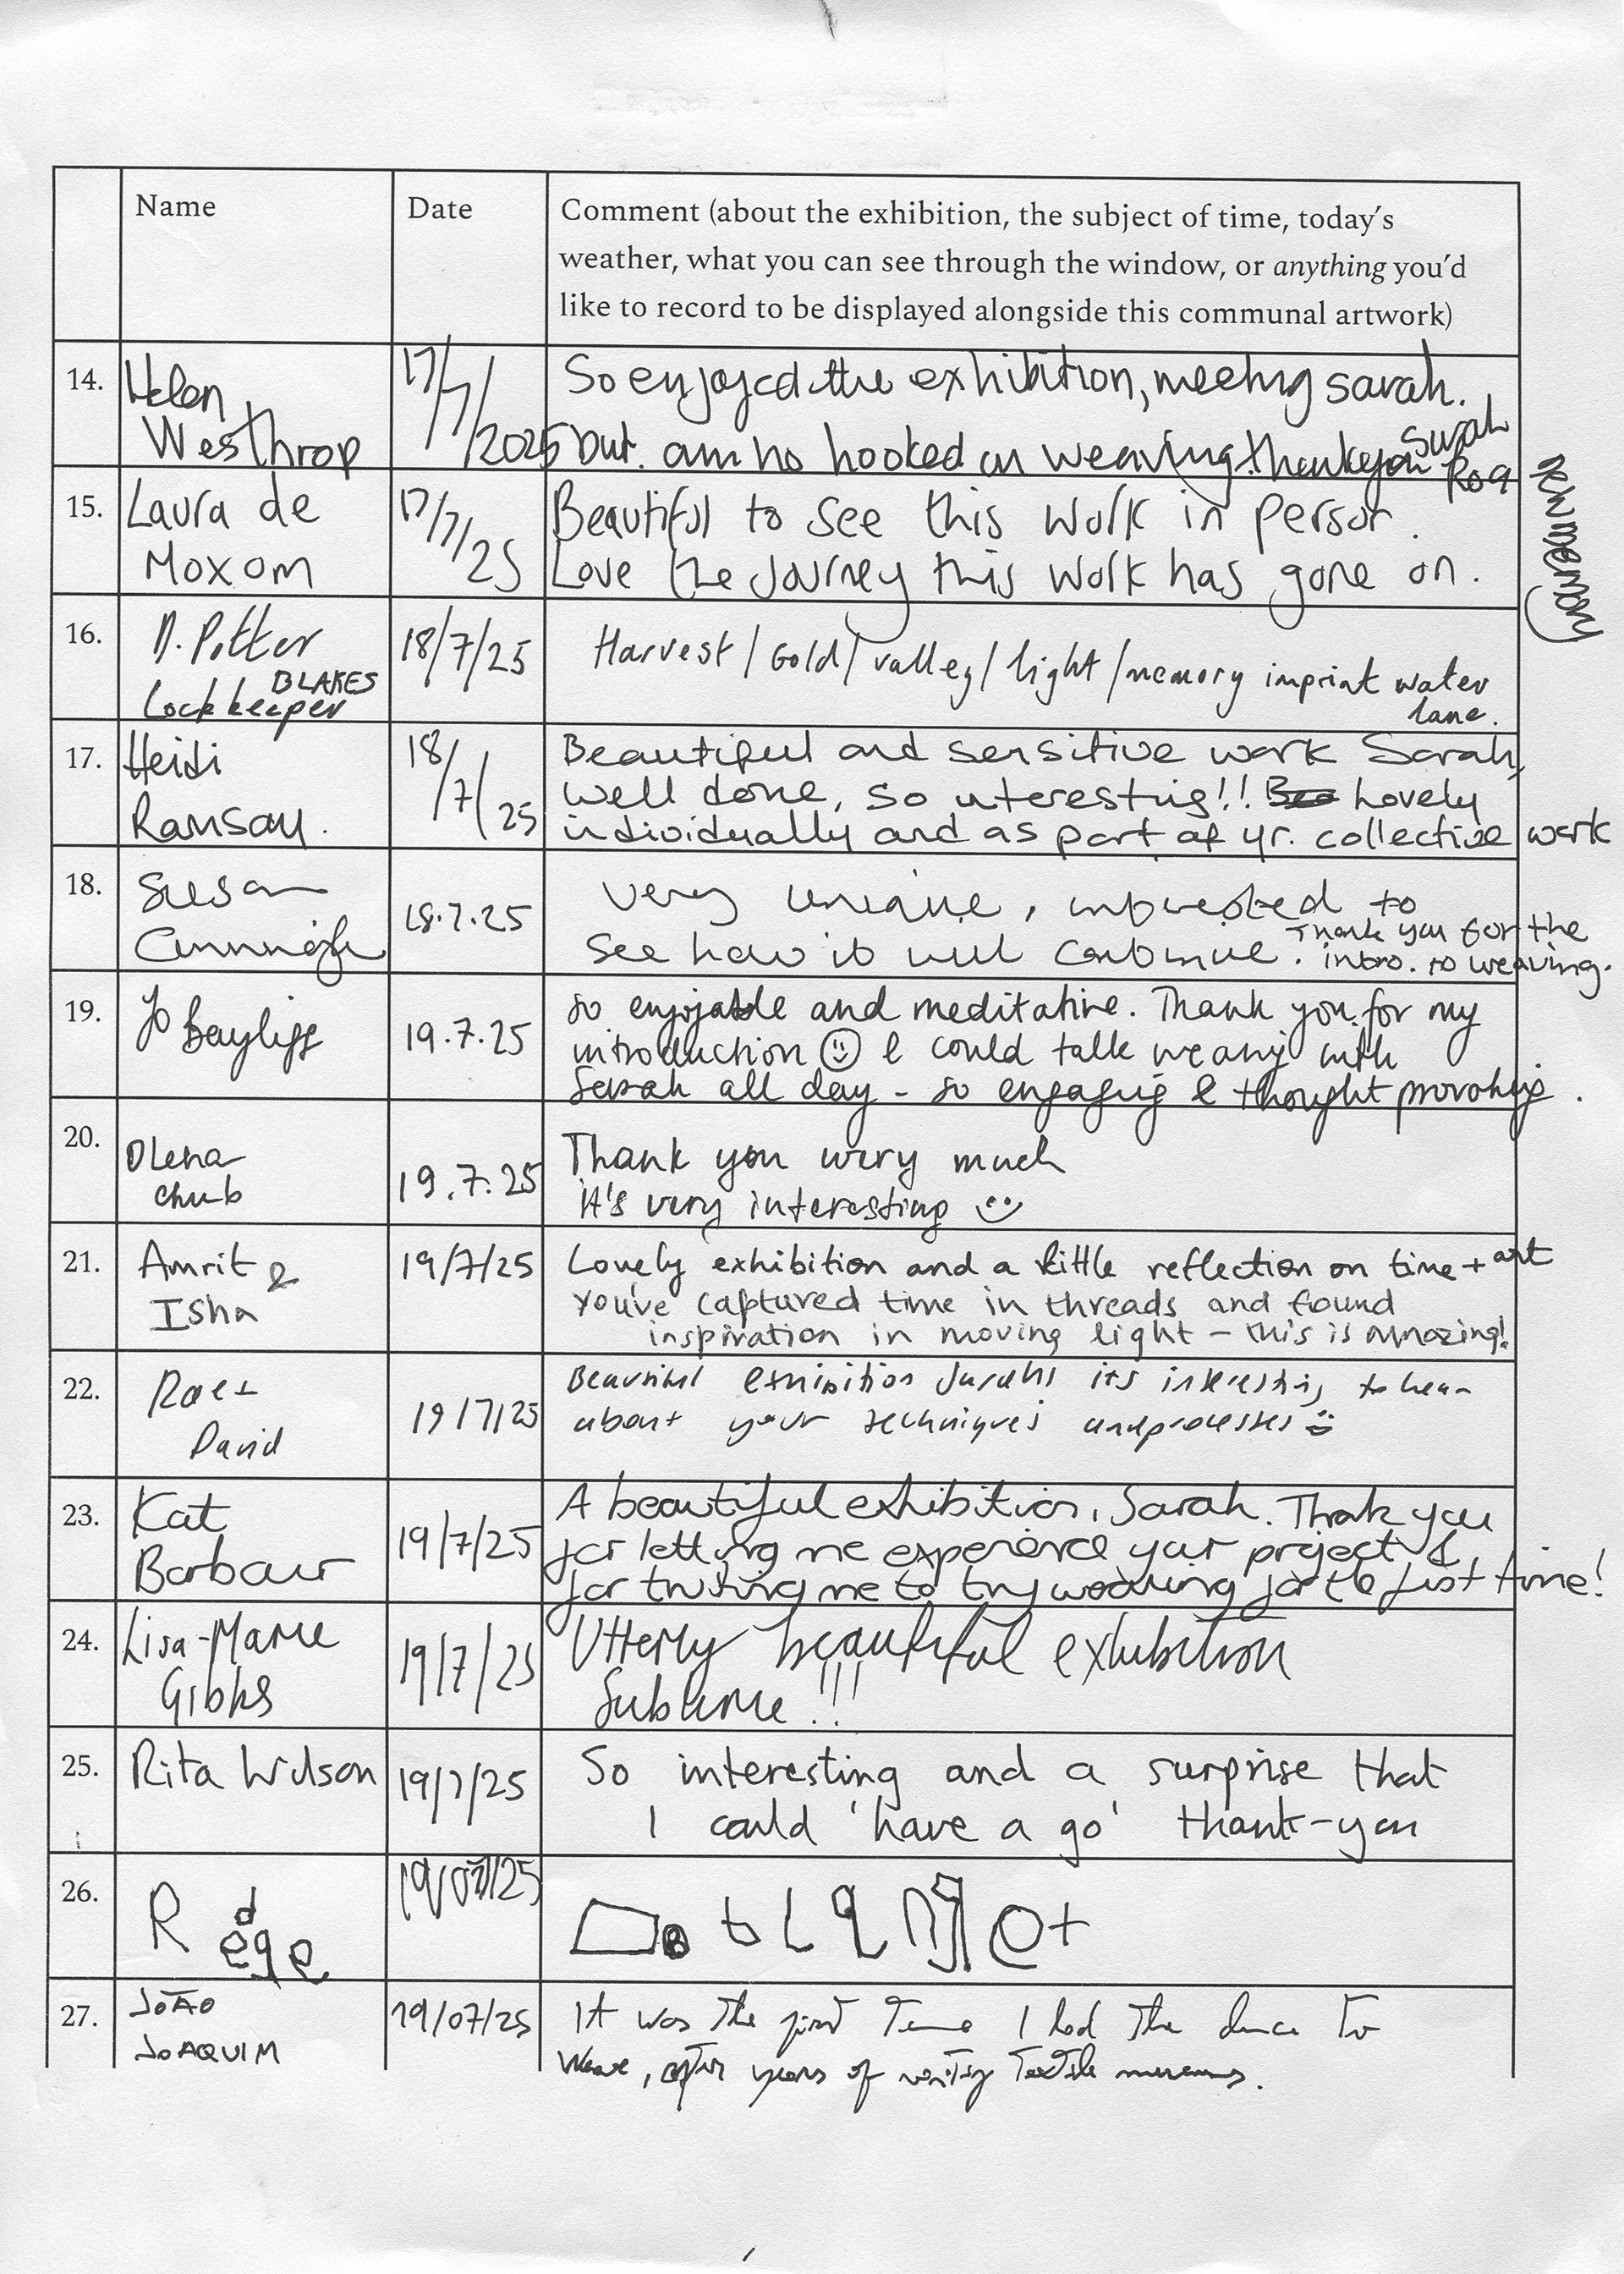 Name Date Comment (about the exhibition, the subject of time, today's
weather, what you can see through the window, or anything you'd
like to record to be displayed alongside this communal artwork)
14. Helen Westhrop 17/7/2025 So enjoyed the exhibition, meeting Sarah.
but am no hooked on weaving. thankyou Sarah
15. Laura de Moxom 17/7/25 Beautiful to see this work in person.
Love the Journey this work has gone on.
new memory
16. D. Potter 18/7/25 Harvest / Gold / valley / light / memory imprint water
BLAKES Lock keeper lane.
17. Heidi Ramsay. 18/7/25 Beautiful and sensitive work Sarah,
well done, so interesting!! Lovely
individually and as part of yr. collective work
18. Susan 18.7.25 very unique, interested to
see how it will continue. Thank you for the
intro. to weaving.
19. Jo Bayliss 19.7.25 so enjoyable and meditative. Thank you for my
introduction I could talk weaving with
Sarah all day - so engaging & thought provoking.
20. Olena Chub 19.7.25 Thank you wery much
it's very interesting
21. Amrit & Isha 19/7/25 Lovely exhibition and a little reflection on time + art
You've captured time in threads and found
inspiration in moving light - this is amazing!
22. David 19/7/25 Beautiful exhibition Sarah! its interesting to hear
about your techniques and processes
23. Kat Barbour 19/7/25 A beautiful exhibition, Sarah. Thank you
for letting me experience your project &
for trusting me to try weaving for the first time!
24. Lisa-Marie Gibbs 19/7/25 Utterly beautiful exhibition
Sublime!!!
25. Rita Wilson 19/7/25 So interesting and a surprise that
I could 'have a go' thank-you
26. 19/07/25
27. JOÃO JOAQUIM 19/07/25 It was the first Time I had the chance To
Weave, after years of visiting Textile museums.